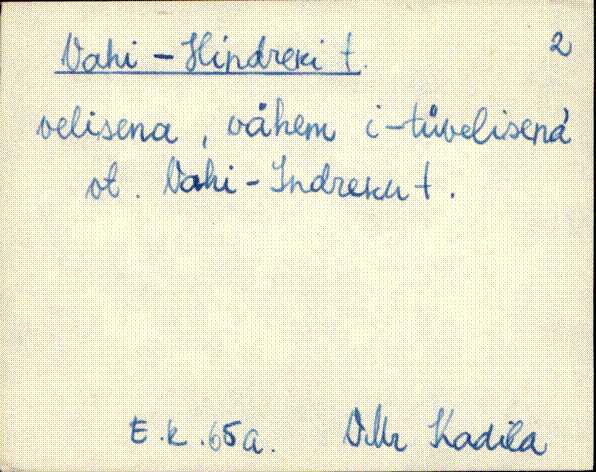 Vahi-Hindreki t. 2
velisena, vähem i-tüvelisena
vt. Vahi-Indreku t.
E.K. 65a. V.Mr Kadila